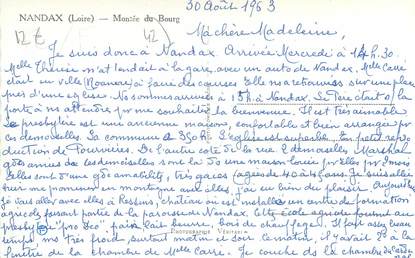 NANDAX (Loire) — Montée du Bourg
30 Août 1963
12 €
42
Ma chère Madeleine,
Je suis donc à Nandax. Arrivée Mercredi à 14h.30.
Melle Thérèse m'attendait à la gare, avec un auto de Nandax. Melle Carré
était en ville (Roanne) à faire des courses. Elle nous a retrouvées sur une place
près d'une église. Nous sommes arrivées à 15h. à Nandax. Le Père était à la
porte à nous attendre pr me souhaiter la bienvenue. Il est très aimable
Le presbytère est une ancienne maison, confortable et bien arrangée par
ces demoiselles. La commune a 350 H. L'église est un petit repro-
duction de Fourvières. De l'autre côté de la 2 demoiselles Marshal
amies des demoiselles sont là do une maison louée par elles pr 2 mois
Elles sont d'une gde amabilité, très gaies (agées de 40 à 45 ans. Je suis allée
hier me promener en montagne avec elles. J'ai eu bien du plaisir. Aujourd'hui
je vais aller avec elles à Ressins, château où est installée un centre de formation
agricole faisant partie de la paroisse de Nandax. Cette école agricole fournit au
presbytère "pro Deo", pain, lait, beurre, bois de chauffage. Il fait assez beau
temps, ms très froid, surtout matin et soir. Ce matin, il y avait 9° à la
fenêtre de la chambre de Melle Carré. Je couche ds la chambre
Photographie Vérifiée